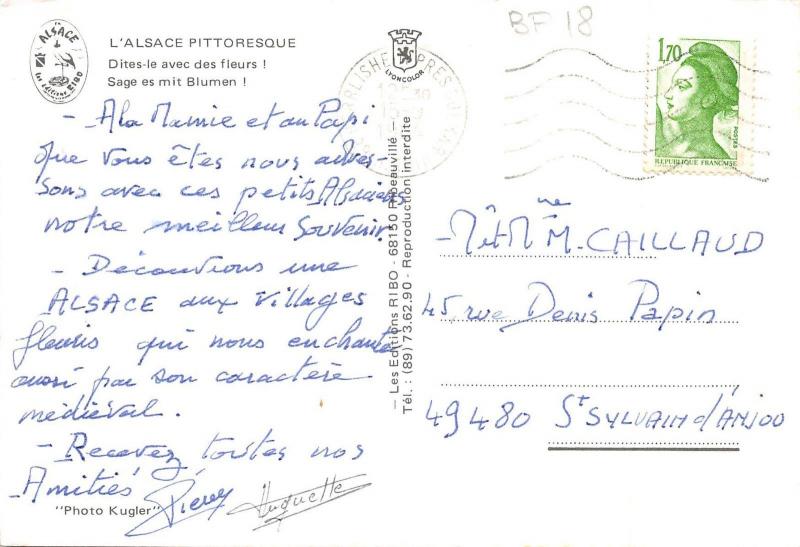 ALSACE
Les Editions RIBO
L'ALSACE PITTORESQUE
Dites-le avec des fleurs !
Sage es mit Blumen !
- A la Mamie et au Papi
que vous êtes nous adres-
sons avec ces petits Alsaciens
notre meilleur souvenir.
- Découvrons une
ALSACE aux villages
fleuris qui nous enchante
aussi par son caractère
médiéval.
- Recevez toutes nos
Amitiés
Pierre Huguette
"Photo Kugler"
LYONCOLOR
— Les Editions RIBO - 68150 Ribeauvillé —
Tél. : (89) 73.62.90 - Reproduction interdite
BF 18
1,70
POSTES
REPUBLIQUE FRANÇAISE
- Mr et Mme M. CAILLAUD
45, rue Denis Papin
49480 St SYLVAIN d'ANJOU